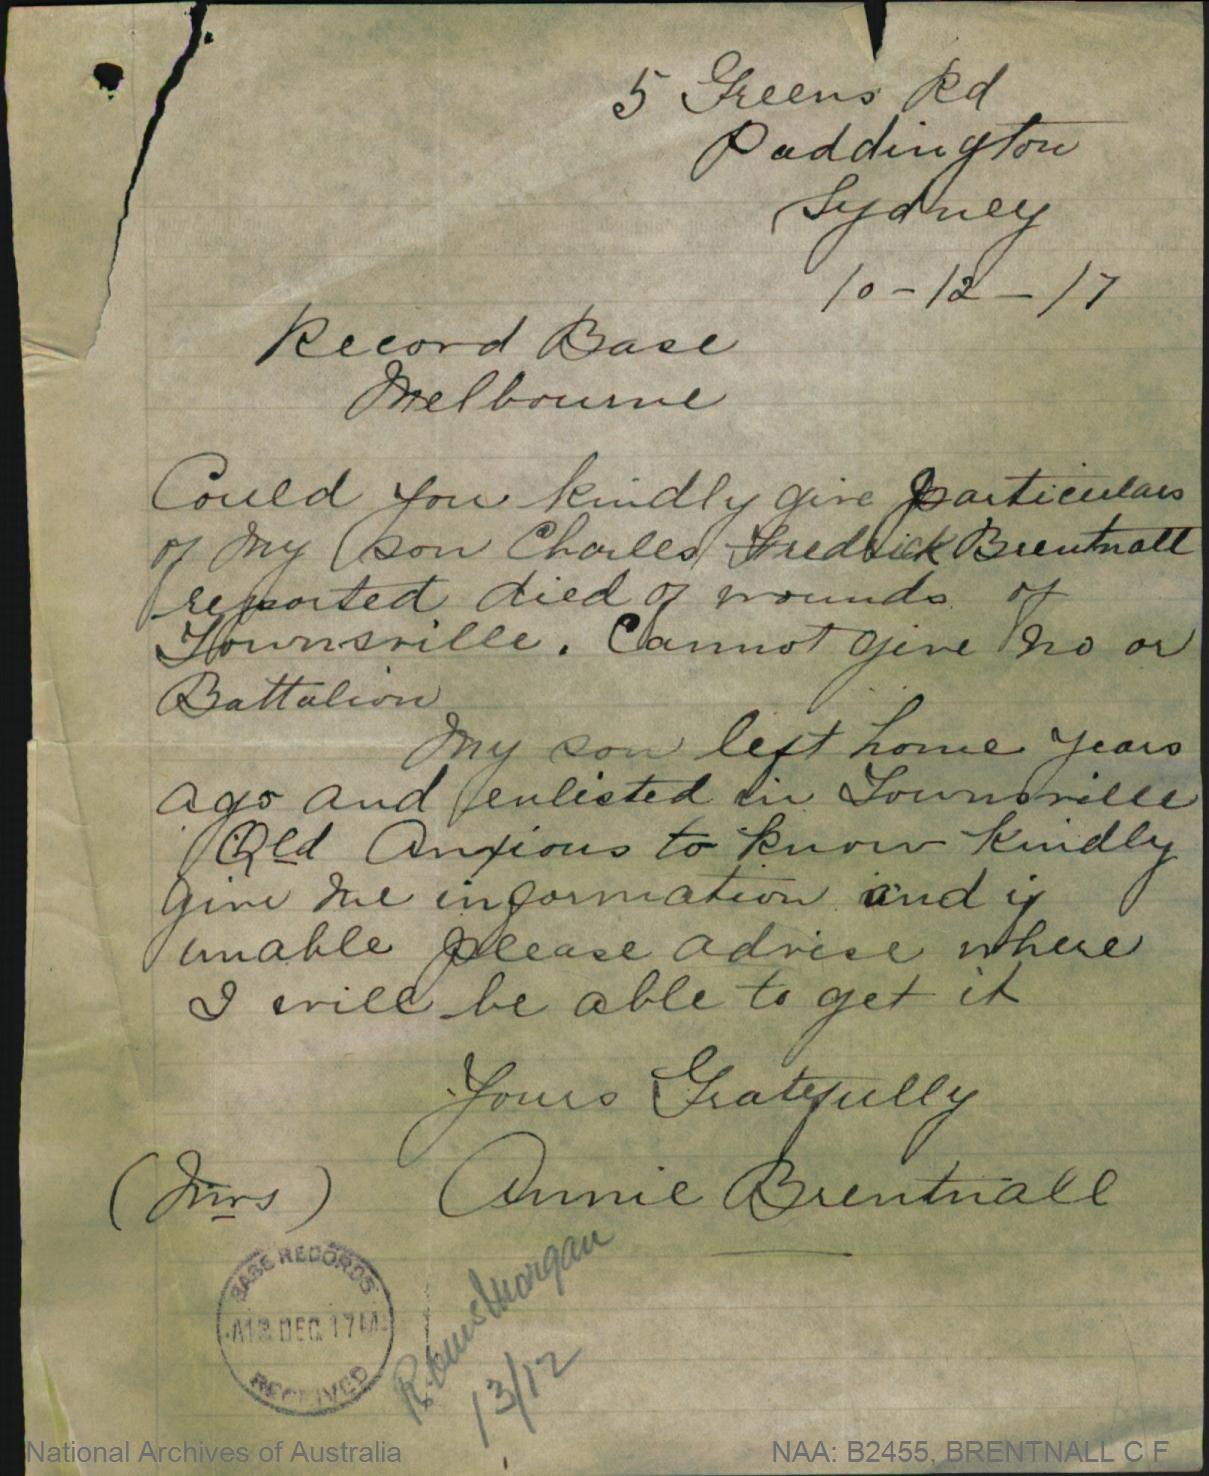 5 Greens Rd
Paddington
Sydney
10-12-17
Record Base
Melbourne
Could you kindly give particulars
of my son Charles Fredrick Brentnall
reported died of wounds of
Townsville. Cannot give no or
Battalion
My son left home years
ago and enlisted in Townsville
Qld Anxious to know kindly
give me information and if
unable please advise where
I will be able to get it
Yours Gratefully
(Mrs) Annie Brentnall
BASE RECORDS
12 DEC 17
RECEIVED
Morgan
13/12
National Archives of Australia
NAA: B2455, BRENTNALL C F